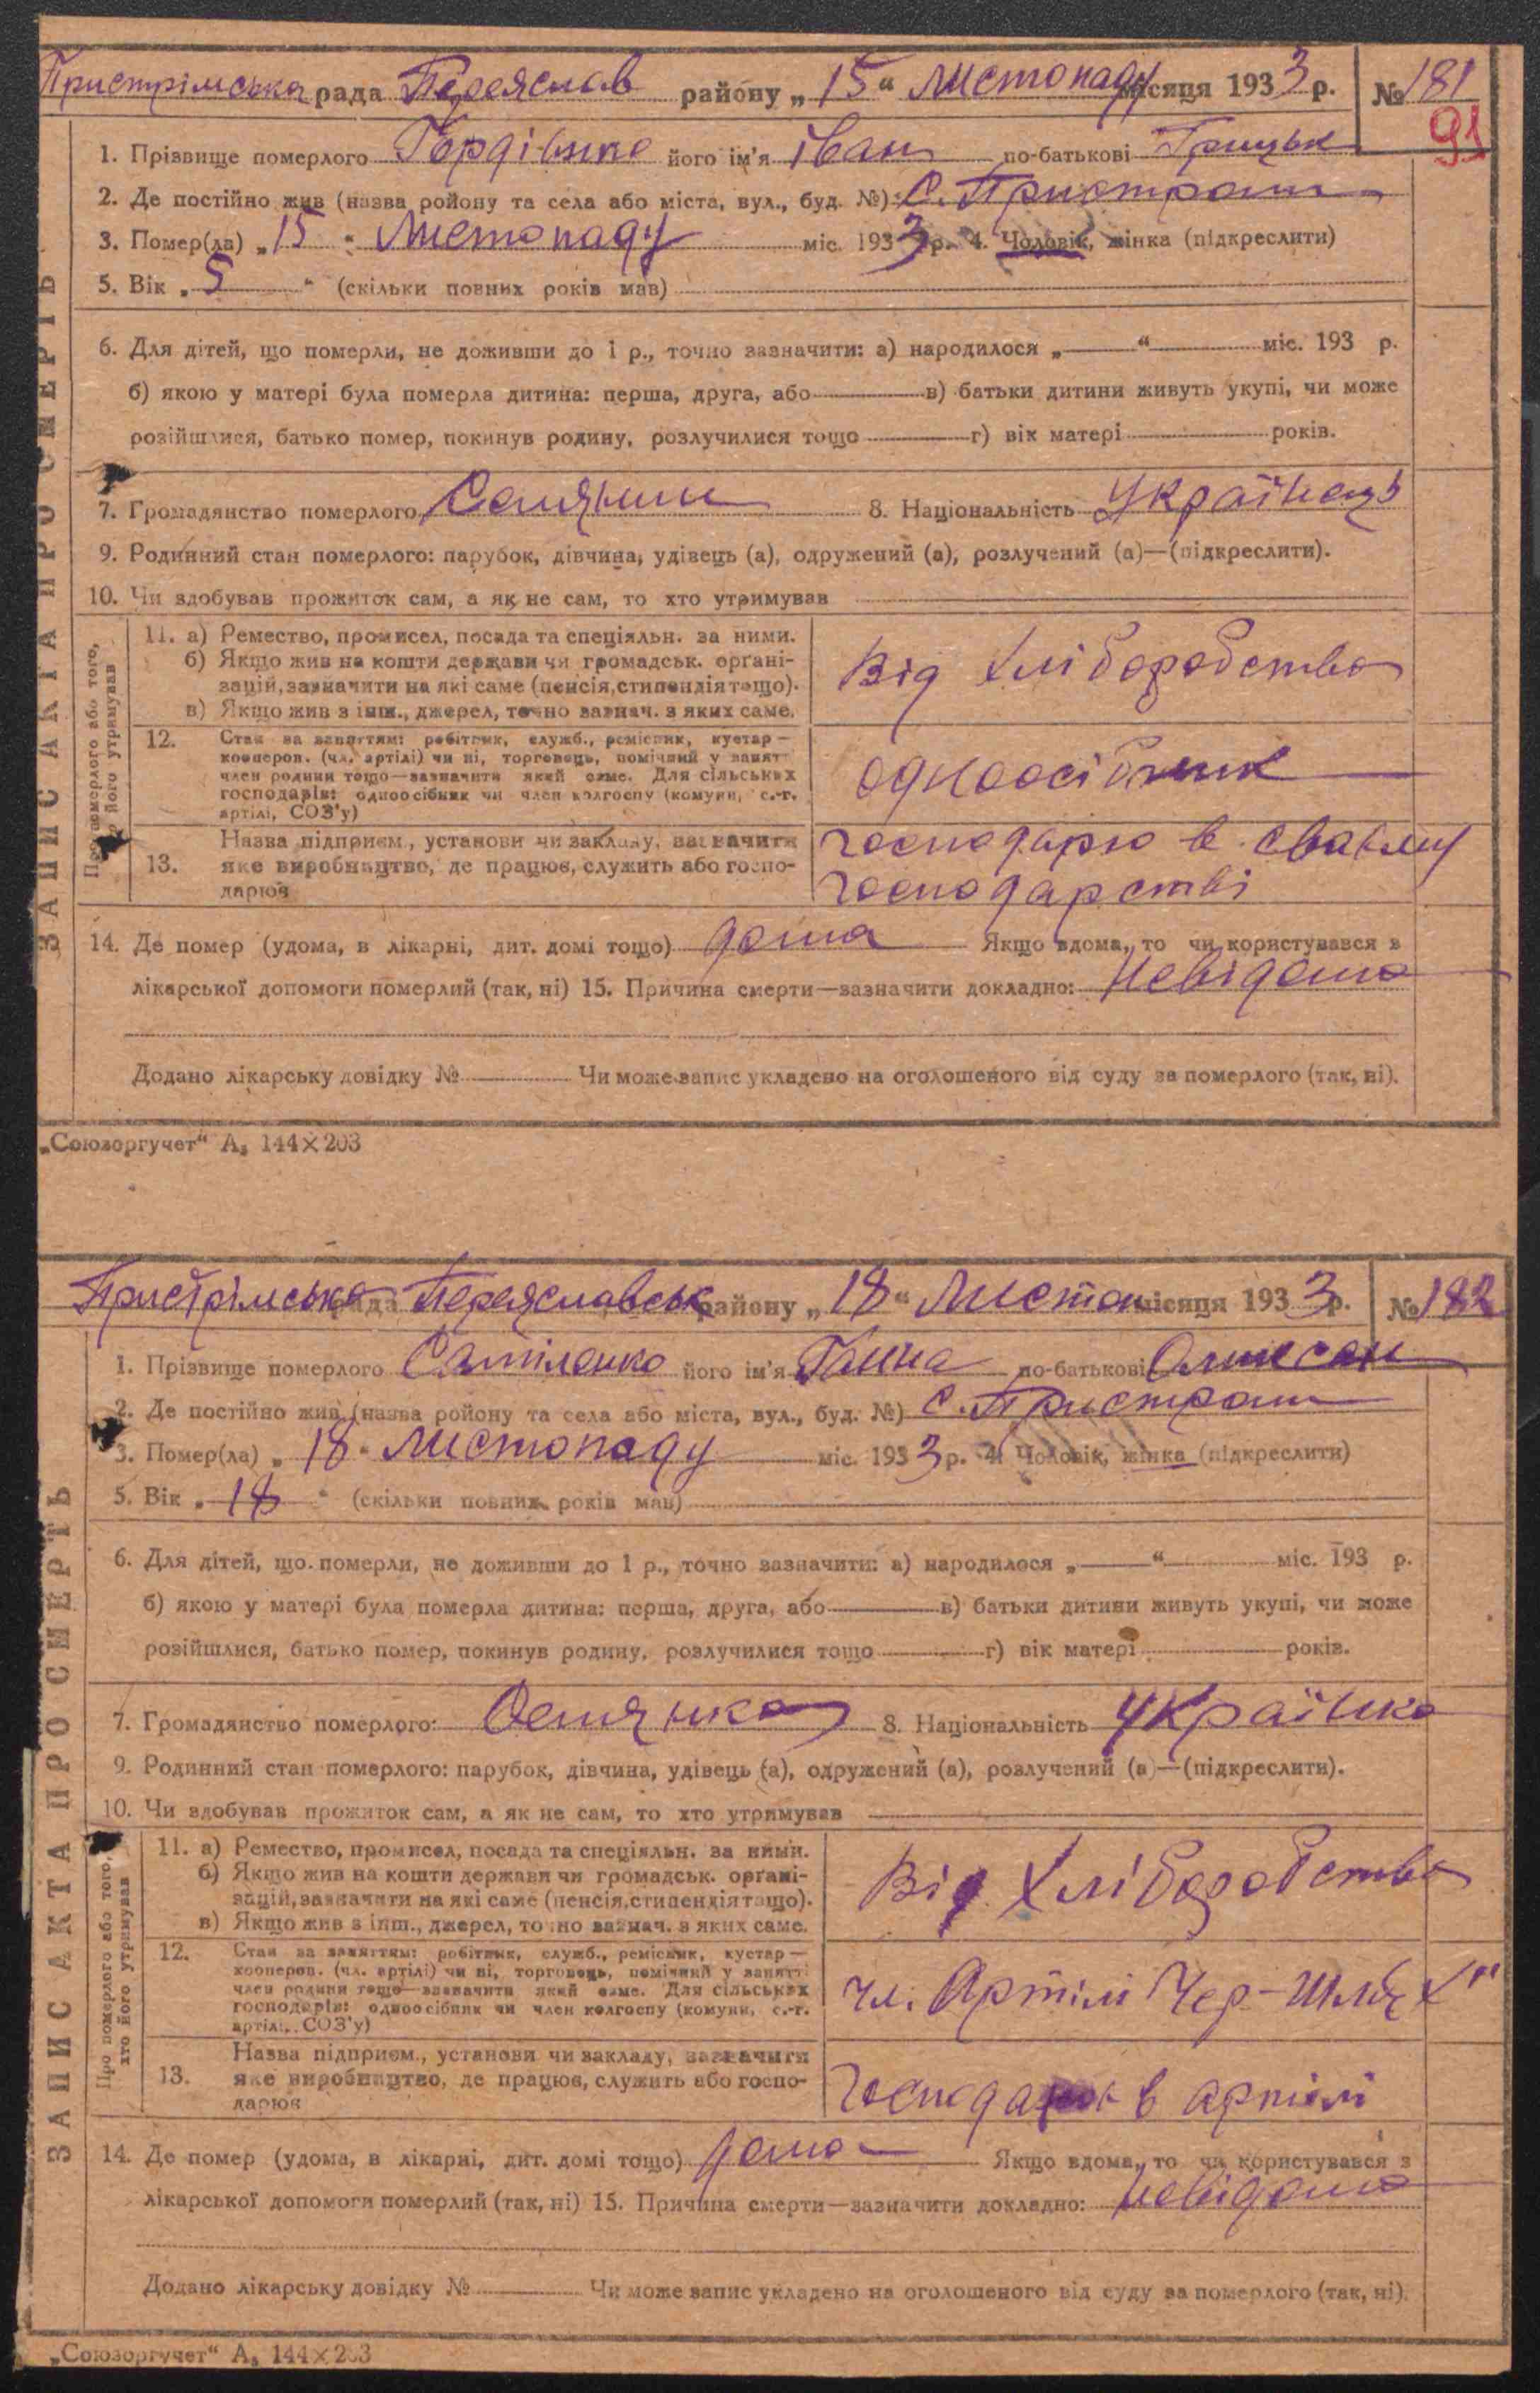 Пристрімська рада Переяслав району „15“ Листопаду місяця 1933 р. № 181
91
1. Прізвище померлого Гордієнко його ім'я Іван по-батькові Грицьк
2. Де постійно жив (назва ройону та села або міста, вул., буд. №) с. Пристроми
3. Помер(ла) „15“ Листопаду міс. 1933 р. 4. Чоловік, жінка (підкреслити)
5. Вік „5“ (скільки повних років мав)
6. Для дітей, що померли, не доживши до 1 р., точно зазначити: а) народилося „—“ міс. 193 р.
б) якою у матері була померла дитина: перша, друга, або в) батьки дитини живуть укупі, чи може
розійшлися, батько помер, покинув родину, розлучилися тощо г) вік матері років.
7. Громадянство померлого Селянин 8. Національність Українець
9. Родинний стан померлого: парубок, дівчина, удівець (а), одружений (а), розлучений (а)—(підкреслити).
10. Чи здобував прожиток сам, а як не сам, то хто утримував
Про померлого або того, хто його утримував
11. а) Ремество, промисел, посада та спеціяльн. за ними.
б) Якщо жив на кошти держави чи громадськ. органі-
зацій, зазначити на які саме (пенсія, стипендія тощо).
в) Якщо жив з інш., джерел, точно зазнач. з яких саме.
Від Хліборобства
12. Стан за заняттям: робітник, служб., ремісник, кустар—
кооперов. (чл. артілі) чи ні, торговець, помічний у занятті
член родини тощо—зазначити який саме. Для сільських
господарів: одноосібник чи член колгоспу (комуни, с.-г.
артілі, СОЗ'у)
одноосібник
13. Назва підприєм., установи чи закладу, зазначити
яке виробництво, де працює, служить або госпо-
дарює
господарю в свавму
господарстві
14. Де помер (удома, в лікарні, дит. домі тощо) дома Якщо вдома, то чи користувався з
лікарської допомоги померлий (так, ні) 15. Причина смерти—зазначити докладно: невідомо
Додано лікарську довідку № Чи може запис укладено на оголошеного від суду за померлого (так, ні).
ЗАПИС АКТА ПРО СМЕРТЬ
„Союзоргучет“ А₅ 144×203
Пристрімська рада Переяславськ району „18“ Листопа місяця 1933 р. № 182
1. Прізвище померлого його ім'я Ганна по-батькові
2. Де постійно жив (назва ройону та села або міста, вул., буд. №) с. Пристроми
3. Помер(ла) „18“ Листопаду міс. 1933 р. 4. Чоловік, жінка (підкреслити)
5. Вік „18“ (скільки повних років мав)
6. Для дітей, що померли, не доживши до 1 р., точно зазначити: а) народилося „—“ міс. 193 р.
б) якою у матері була померла дитина: перша, друга, або в) батьки дитини живуть укупі, чи може
розійшлися, батько помер, покинув родину, розлучилися тощо г) вік матері років.
7. Громадянство померлого: Селянка 8. Національність Українка
9. Родинний стан померлого: парубок, дівчина, удівець (а), одружений (а), розлучений (а)—(підкреслити).
10. Чи здобував прожиток сам, а як не сам, то хто утримував
Про померлого або того, хто його утримував
11. а) Ремество, промисел, посада та спеціяльн. за ними.
б) Якщо жив на кошти держави чи громадськ. органі-
зацій, зазначити на які саме (пенсія, стипендія тощо).
в) Якщо жив з інш., джерел, точно зазнач. з яких саме.
Від Хліборобства
12. Стан за заняттям: робітник, служб., ремісник, кустар—
кооперов. (чл. артілі) чи ні, торговець, помічний у занятті
член родини тощо—зазначити який саме. Для сільських
господарів: одноосібник чи член колгоспу (комуни, с.-г.
артілі, СОЗ'у)
чл. Артілі Чер-Шлях"
13. Назва підприєм., установи чи закладу, зазначити
яке виробництво, де працює, служить або госпо-
дарює
в артілі
14. Де помер (удома, в лікарні, дит. домі тощо) дома Якщо вдома, то чи користувався з
лікарської допомоги померлий (так, ні) 15. Причина смерти—зазначити докладно: невідомо
Додано лікарську довідку № Чи може запис укладено на оголошеного від суду за померлого (так, ні).
ЗАПИС АКТА ПРО СМЕРТЬ
„Союзоргучет“ А₅ 144×203